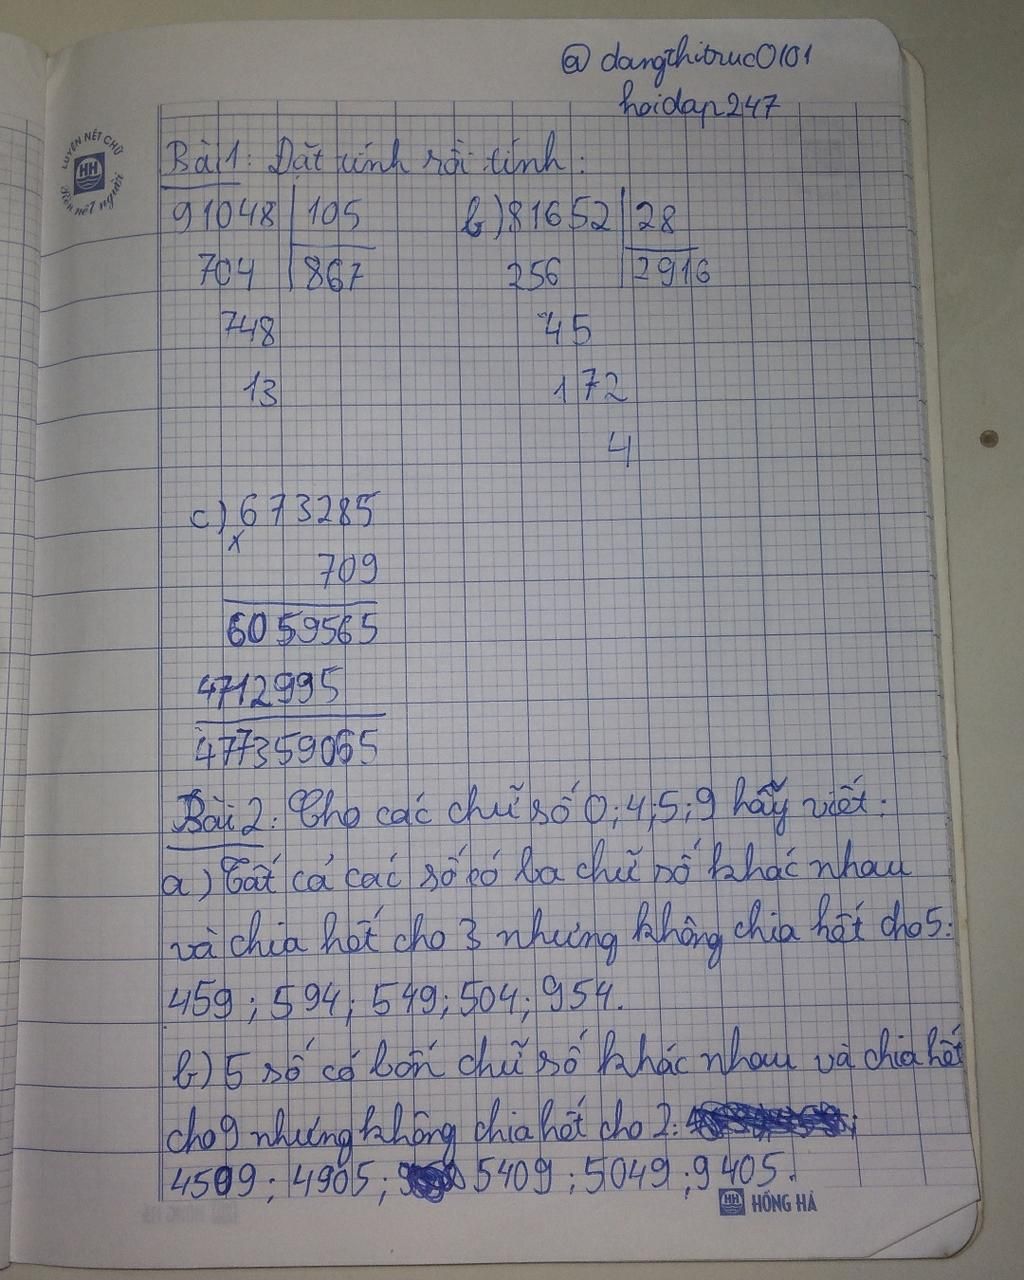 @ dangthitruc0101
hoidap247
LUYỆN NÉT CHỮ
HH
Rèn nết người
Bài 1: Đặt tính rồi tính:
91048 105 b) 81652 28
704 867 256 2916
748 45
13 172
4
c) 673285
x
709
6059565
4712995
477359065
Bài 2: Cho các chữ số 0; 4; 5; 9 hãy viết:
a) Tất cả các số có ba chữ số khác nhau
và chia hết cho 3 nhưng không chia hết cho 5:
459; 594; 549; 504; 954.
b) 5 số có bốn chữ số khác nhau và chia hết
cho 9 nhưng không chia hết cho 2:
4509; 4905; 5409; 5049; 9405.
HH HỒNG HÀ